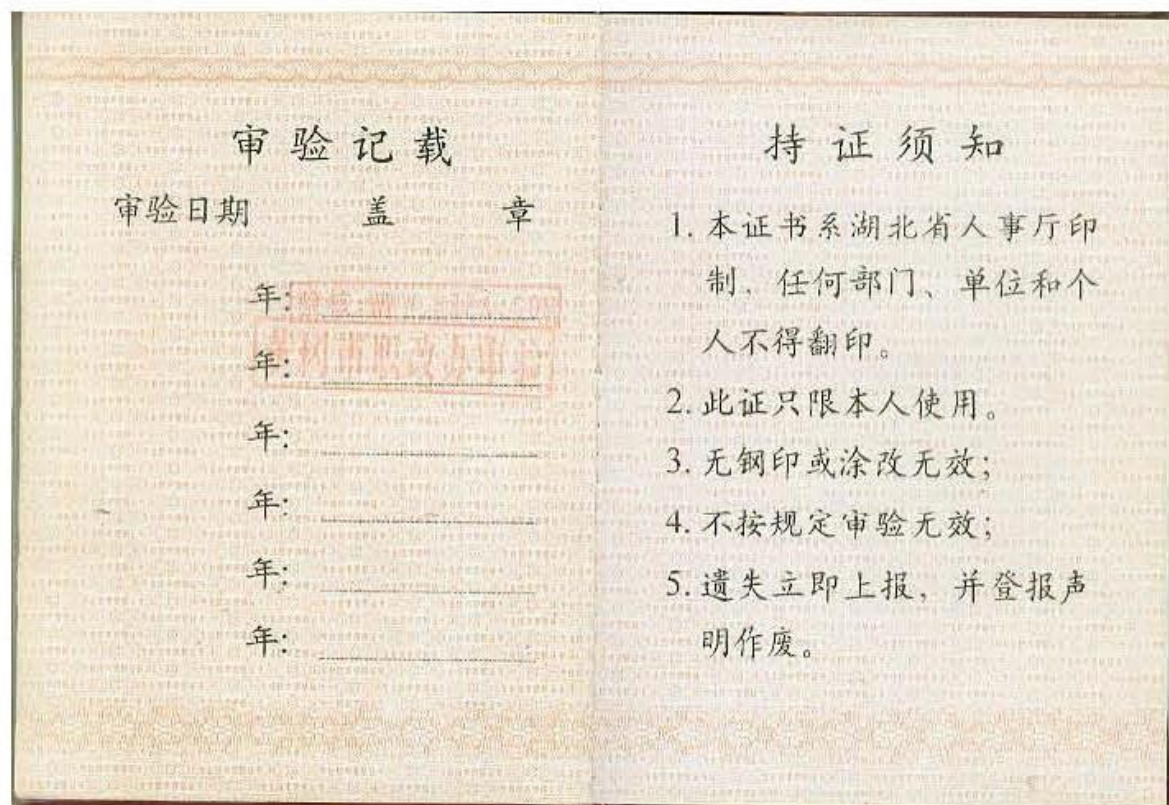 审验记载
审验日期 盖 章
年:
年:
年:
年:
年:
年:
持证须知
1. 本证书系湖北省人事厅印
制、任何部门、单位和个
人不得翻印。
2. 此证只限本人使用。
3. 无钢印或涂改无效;
4. 不按规定审验无效;
5. 遗失立即上报、并登报声
明作废。